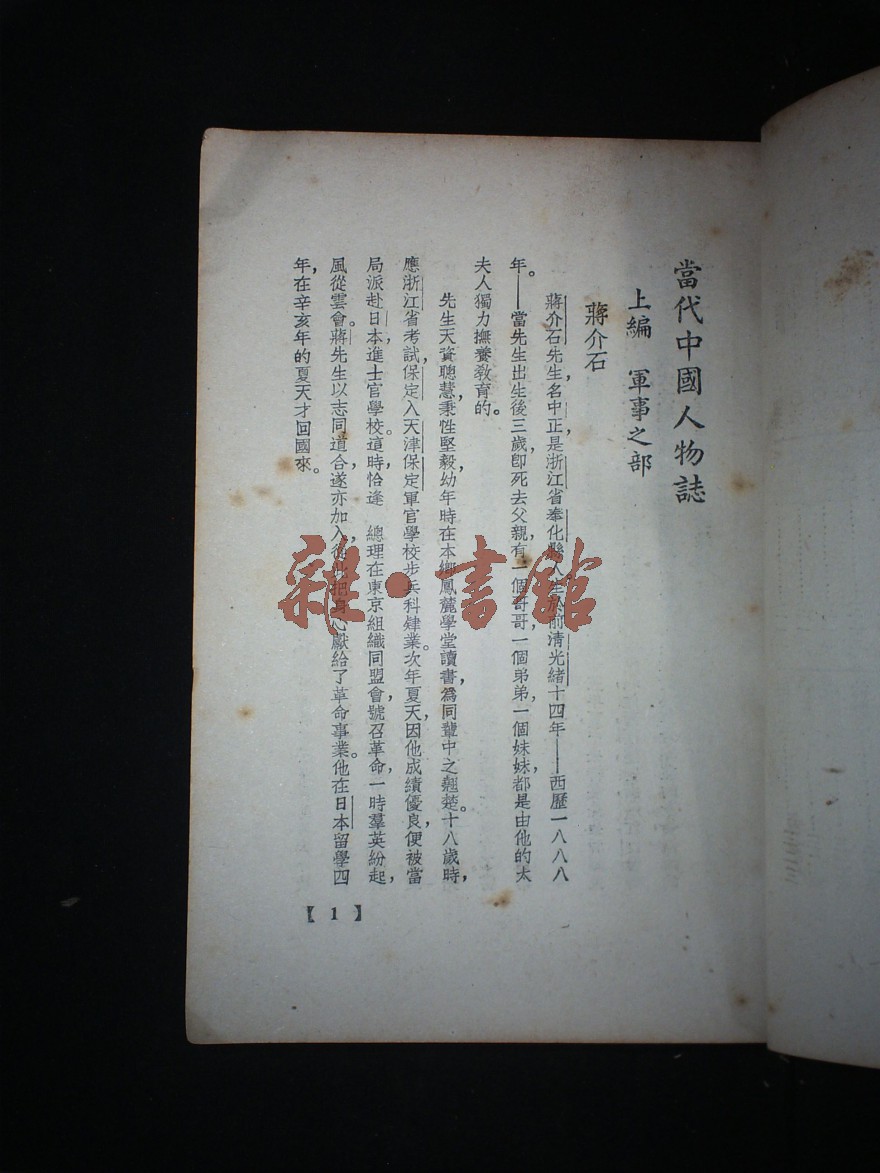 當代中國人物誌
上編 軍事之部
蔣介石
蔣介石先生,名中正,是浙江省奉化縣人。生於前清光緒十四年——西歷一八八八
年。——當先生出生後三歲,卽死去父親,有一個哥哥,一個弟弟,一個妹妹,都是由他的太
夫人獨力撫養敎育的。
先生天資聰慧,秉性堅毅,幼年時在本鄉鳳麓學堂讀書,爲同輩中之翹楚。十八歲時,
應浙江省考試保定,入天津保定軍官學校步兵科肄業。次年夏天,因他成績優良,便被當
局派赴日本,進士官學校。這時恰逢 總理在東京組織同盟會,號召革命,一時羣英紛起,
風從雲會。蔣先生以志同道合,遂亦加入,從此把身心獻給了革命事業。他在日本留學四
年,在辛亥年的夏天才回國來。
【1】
雜·書館